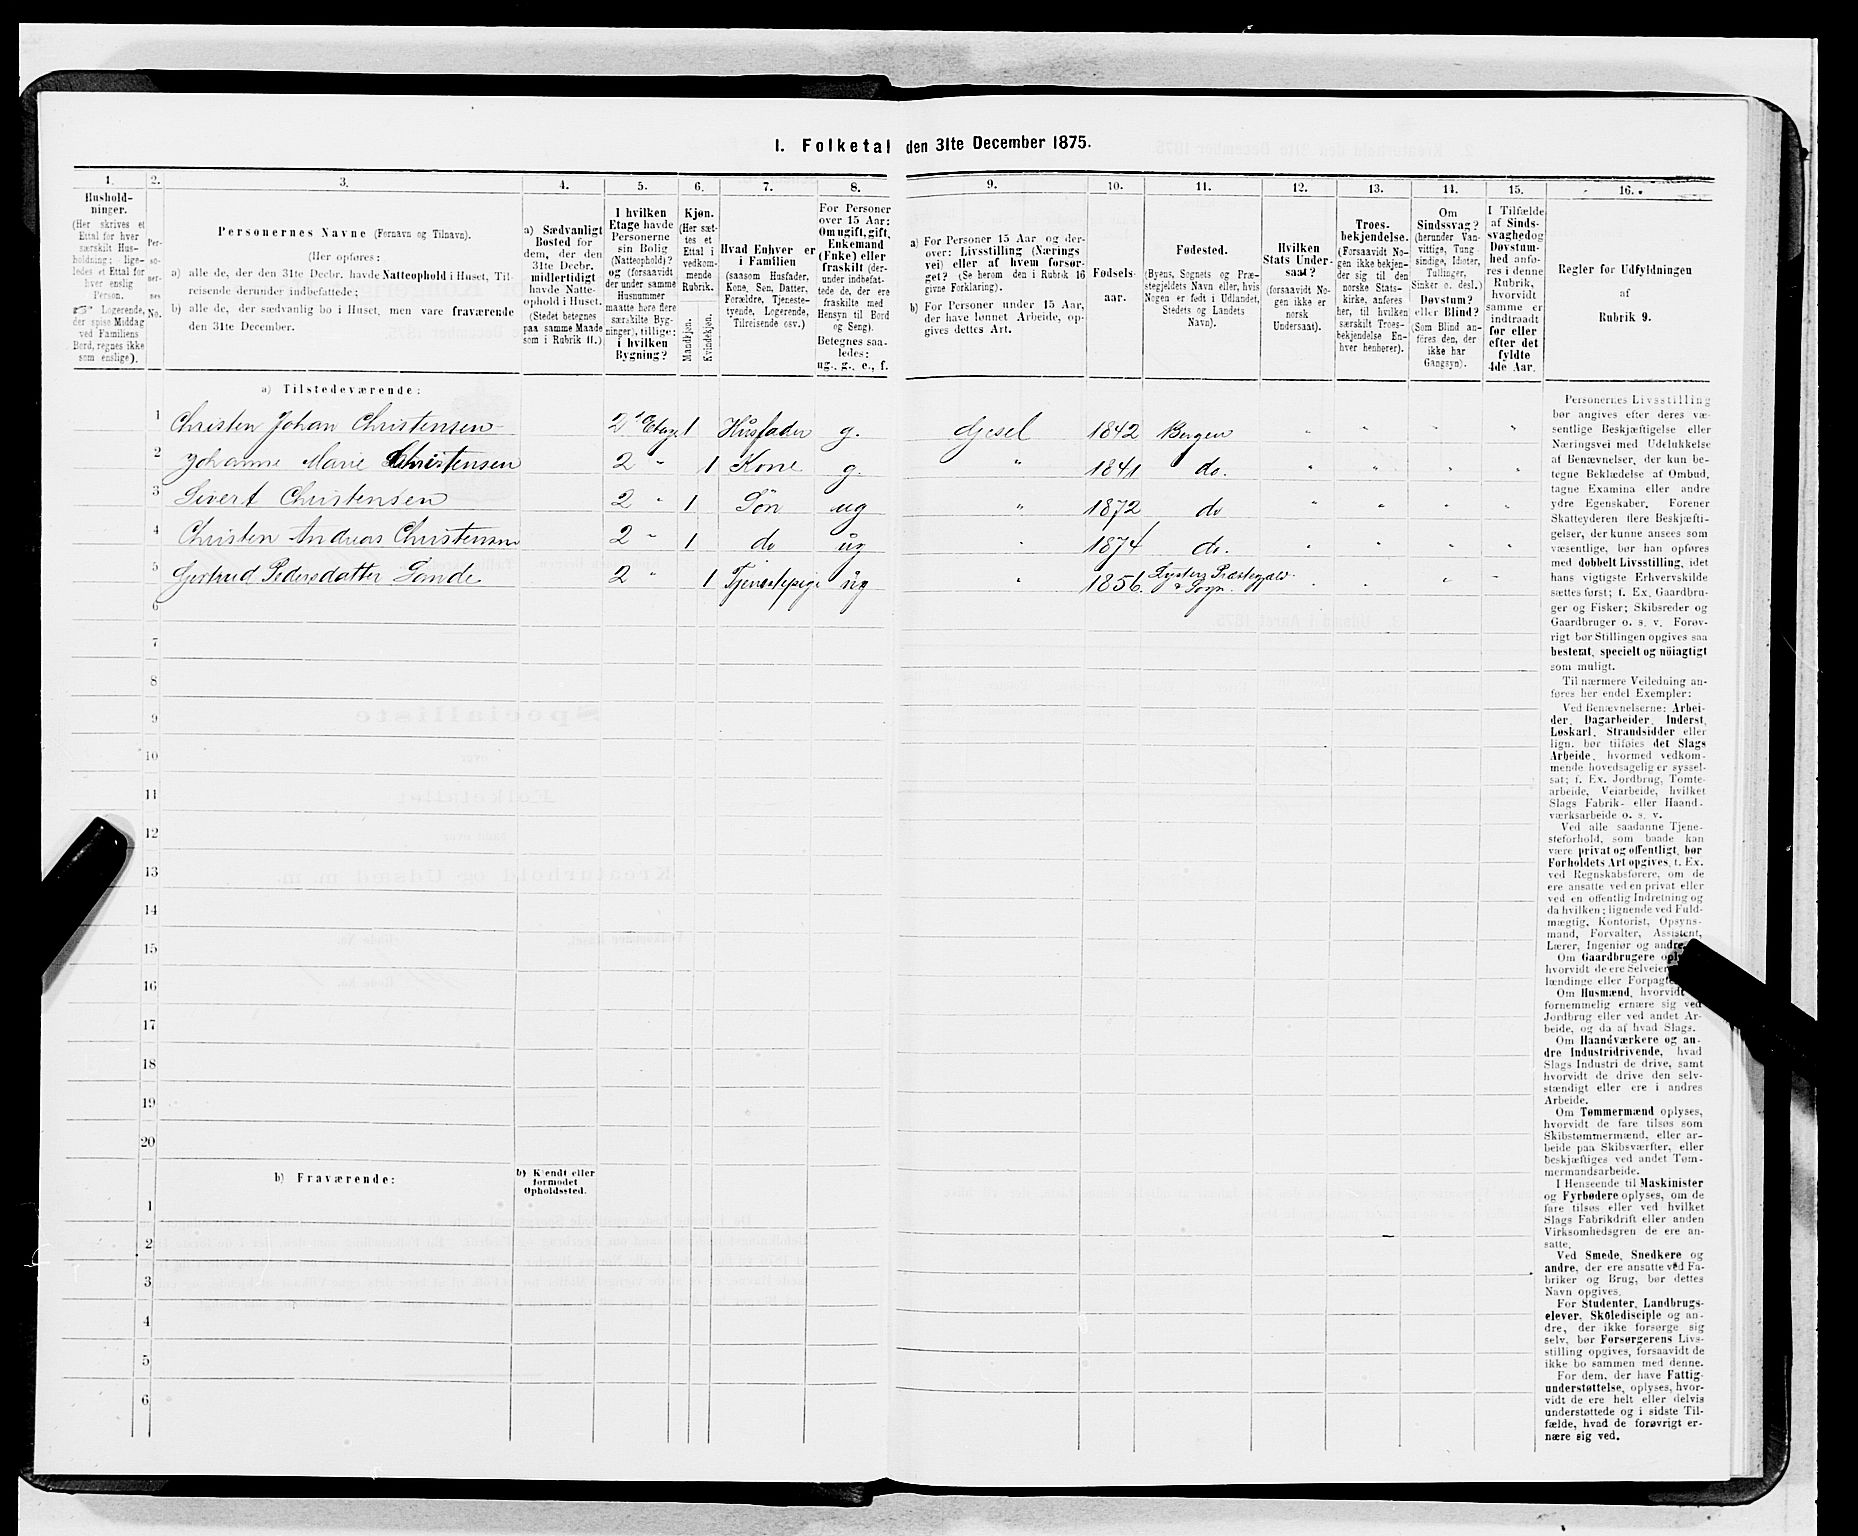 I. Folketal den 31te December 1875.
1.
Hushold-
ninger.
(Her skrives et
Ettal for hver
særskilt Hus-
holdning; lige-
ledes et Ettal for
hver enslig
Person.
☞ Logerende,
der spise Middag
ved Familiens
Bord, regnes ikke
som enslige).
2.
Per-
so-
ner-
nes
No.
3.
Personernes Navne (Fornavn og Tilnavn).
(Her opføres:
a) alle de, der den 31te Decbr. havde Natteophold i Huset, Til-
reisende derunder indbefattede;
b) alle de, der sædvanlig bo i Huset, men vare fraværende
den 31te December.
4.
a) Sædvanligt
Bosted for
dem, der den
31te Decbr.
midlertidigt
havde Natte-
ophold i Huset.
(Stedet betegnes
paa samme Maade
som i Rubrik 11.)
5.
I hvilken
Etage havde
Personerne
sin Bolig
(Natteophold)?
og (forsaavidt
der under samme
Husnummer
maatte høre flere
særskilte Byg-
ninger), tillige:
i hvilken
Bygning?
6.
Kjøn.
(Her sæt-
tes et
Ettal i
vedkom-
mende
Rubrik.
Mandkjøn.
Kvindekjøn.
7.
Hvad Enhver er
i Familien
(saasom Husfader,
Kone, Søn, Datter,
Forældre, Tjeneste-
tyende, Logerende,
Tilreisende osv.)
8.
For Personer
over 15 Aar:
Om ugift, gift,
Enkemand
(Enke) eller
fraskilt (der-
under indbefat-
tede de, der ere
fraskilte med
Hensyn til Bord
og Seng).
Betegnes saa-
ledes:
ug., g., e., f.
9.
a) For Personer 15 Aar og der-
over: Livsstilling (Nærings
vei) eller af hvem forsør-
get? (Se herom den i Rubrik 16
givne Forklaring).
b) For Personer under 15 Aar,
der have lønnet Arbeide, op-
gives dettes Art.
10.
Fødsels-
aar.
11.
Fødested.
(Byens, Sognets og Præ-
stegjeldets Navn eller, hvis
Nogen er født i Udlandet,
Stedets og Landets
Navn).
12.
Hvilken
Stats Under-
saat?
(forsaavidt No-
gen ikke er
norsk
Undersaat).
13.
Troes-
bekjendelse.
(Forsaavidt No-
gen ikke bekjen-
der sig til den
norske Stats-
kirke, anføres
her, til hvilken
særskilt Troes-
bekjendelse En-
hver henhører).
14.
Om
Sindssvag?
(herunder Van-
vittige, Tung-
sindige, Idioter,
Tullinger,
Sinker o. desl.)
Døvstum?
eller Blind?
(Som Blind an-
føres den, der
ikke har
Gangsyn).
15.
I Tilfælde
af Sinds-
svaghed og
Døvstum-
hed anfø-
res i denne
Rubrik,
hvorvidt
samme er
indtraadt
før eller
efter det
fyldte
4de Aar.
16.
Regler for Udfyldningen
af
Rubrik 9.
a) Tilstedeværende:
1 Christen Johan Christensen 2' Etage 1 Husfader g. djesel 1842 Bergen " " " "
2 Johanne Marie Christensen 2 " 1 Kone g. " 1841 do. " " " "
3 Sivert Christensen 2 " 1 Søn ug " 1872 do " " " "
4 Christen Andreas Christensen 2 " 1 do ug " 1874 do. " " " "
5 Gjertrud Pedersdatter Sande 2 " 1 Tjenestepige ug " 1856. Lysters Præstegjæld " " " "
& Sogn.
6
7
8
9
10
11
12
13
14
15
16
17
18
19
20
b) Fraværende:
b) Kjendt eller
formodet
Opholdssted.
1
2
3
4
5
6
Personernes Livsstilling
bør angives efter deres væ-
sentlige Beskjæftigelse eller
Næringsvei med Udelukkelse
af Benævnelser, der kun be-
tegne Beklædelse af Ombud,
tagne Examina eller andre
ydre Egenskaber. Forener
Skatteyderen flere Beskjæfti-
gelser, der kunne ansees som
væsentlige, bør han opføres
med dobbelt Livsstilling, idet
hans vigtigste Erhvervskilde
sættes først; f. Ex. Gaardbru-
ger og Fisker; Skibsreder og
Gaardbruger o. s. v. Forøv-
rigt bør Stillingen opgives saa
bestemt, specielt og nöiagtigt
som muligt.
Til nærmere Veiledning an-
føres her endel Exempler:
Ved Benævnelserne: Arbei-
der, Dagarbeider, Inderst,
Løskarl, Strandsidder eller
lign. bør tilføies det Slags
Arbeide, hvormed vedkom-
mende hovedsagelig er syssel-
sat; f. Ex. Jordbrug, Tomte-
arbeide, Veiarbeide, hvilket
Slags Fabrik- eller Haand-
værksarbeide o. s. v.
Ved alle saadanne Tjene-
steforhold, som baade kan
være privat og offentligt, bør
Forholdets Art opgives, f. Ex.
ved Regnskabsførere, om de
ere ansatte ved en privat eller
ved en offentlig Indretning og
da hvilken; lignende ved Fuld-
mægtig, Kontorist, Opsyns-
mand, Forvalter, Assistent,
Lærer, Ingeniør og andre.
Om Gaardbrugere oply-
hvorvidt de ere Selveiere,
lændinge eller Forpagtere.
Om Husmænd, hvorvidt
fornemmelig ernære sig ved
Jordbrug eller ved andet Ar-
beide, og da af hvad Slags.
Om Haandværkere og an-
dre Industridrivende, hvad
Slags Industri de drive, samt
hvorvidt de drive den selv-
stændigt eller ere i andres
Arbeide.
Om Tømmermænd oplyses,
hvorvidt de fare tilsøs som
Skibstømmermænd, eller ar-
beide paa Skibsværfter, eller
beskjæftiges ved andet Tøm-
mermandsarbeide.
I Henseende til Maskinister
og Fyrbødere oplyses, om de
fare tilsøs eller ved hvilket
Slags Fabrikdrift eller anden
Virksomhedsgren de ere an-
satte.
Ved Smede, Snedkere og
andre, der ere ansatte ved Fa-
briker og Brug, bør dettes
Navn opgives.
For Studenter, Landbrugs-
elever, Skoledisciple og an-
dre, der ikke forsørge sig
selv, bør Forsørgerens Livs-
stilling opgives, forsaavidt de
ikke bo sammen med denne.
For dem, der have Fattig-
understøttelse, oplyses, hvor-
vidt de ere helt eller delvis
understøttede og i sidste Til-
fælde, hvad de forøvrigt er-
nære sig ved.